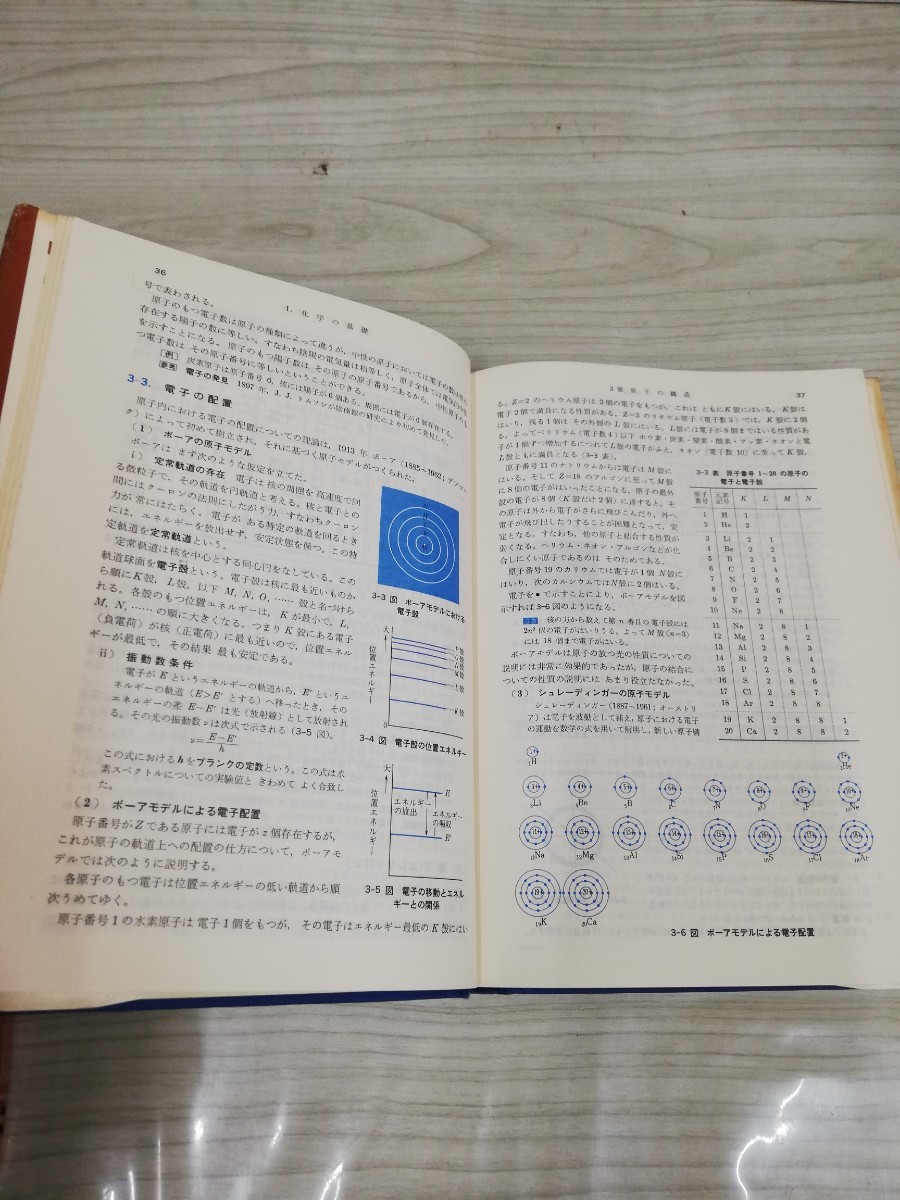 36
1. 化学の基礎
号で表わされる。
原子のもつ電子数は原子の種類によって違うが，中性の原子においては電子の数は核に
存在する陽子の数に等しい。すなわち陰陽の電気量は相等しく，原子全体では電気的中性
を示すことになる。原子のもつ陽子数は，その原子の原子番号であるから，中性原子のも
つ電子数は その原子番号に等しいということができる。
［例］ 炭素原子は原子番号 6，核には陽子が6個ある。周囲には電子が6個存在する。
［参考］ 電子の発見 1897年，J. J. トムソンが陰極線の研究により初めて発見した。
3-3. 電子の配置
原子内における電子の配置についての理論は，1913年，ボーア (1885~1962; デンマー
ク) によって初めて樹立され，それに基づく原子モデルがつくられた。
(1) ボーアの原子モデル
ボーアは まず次のような仮定を立てた。
i) 定常軌道の存在 電子は 核の周囲を高速度で回
る微粒子で，その軌道を円軌道と考える。核と電子との
間にはクーロンの法則にしたがう力，すなわちクーロン
力が 常にはたらく。電子が ある特定の軌道を回るとき
には，エネルギーを放出せず，安定状態を保つ。この特
定軌道を定常軌道という。
定常軌道は核を中心とする同心円をなしている。この
軌道球面を電子殻という。電子殻は核に最も近いものか
ら順にK殻，L殻，以下 M, N, O, …… 殻と名づけら
れる。各殻のもつ位置エネルギーは，K が最小で，L,
M, N, …… の順に大きくなる。つまり K 殻にある電子
(負電荷) が核 (正電荷) に最も近いので，位置エネル
ギーが最低で，その結果 最も安定である。
ii) 振動数条件
電子が E というエネルギーの軌道から，E′ というエ
ネルギーの軌道 (E>E′ とする) へ移ったとき，その
エネルギーの差 E−E′ は光 (放射線) として放射され
る。その光の振動数 ν は次式で示される (3-5 図)。
ν=E−E′/h
この式における h をプランクの定数という。この式は水
素スペクトルについての実験値と きわめて よく合致し
た。
(2) ボーアモデルによる電子配置
原子番号がZである原子には電子が z 個存在するが，
これが原子の軌道上への配置の仕方について，ボーアモ
デルでは次のように説明する。
各原子のもつ電子は位置エネルギーの低い軌道から順
次うめてゆく。
原子番号 1 の水素原子は 電子 1 個をもつが，その電子はエネルギー最低の K 殻にはい
3-3 図 ボーアモデルにおける
電子殻
大
位置エネルギー
L殻
K殻
0
3-4 図 電子殻の位置エネルギー
大
位置エネルギー
E
エネルギーの放出
エネルギーの吸収
E′
3-5 図 電子の移動とエネル
ギーとの関係
3章 原子の構造
37
る。Z=2 のヘリウム原子は 2 個の電子をもつが，これは ともにK殻にはいる。K殻は
電子 2 個で満員になる性質がある。Z=3 のリチウム原子 (電子数 3) では，K 殻に 2 個
はいり，残る 1 個は その外側の L 殻にはいる。L殻には電子が 8 個まではいる性質があ
る。よってベリリウム (電子数 4) 以下 ホウ素・炭素・窒素・酸素・フッ素・ネオンと電
子が 1 個ずつ増加するにつれてL殻の電子がふえ，ネオン (電子数 10) に至って K 殻，
L 殻ともに満員となる (3-3 表)。
原子番号 11 のナトリウムからは電子は M 殻に
はいる。そして Z=18 のアルゴンに至って M 殻
に 8 個の電子がはいったことになる。原子の最外
殻の電子が 8 個 (K 殻だけ 2 個) に達すると，そ
の原子は外から電子がさらに飛びこんだり，外へ
電子が飛び出したりすることが困難となって，安
定となる。すなわち，他の原子と結合する性質が
弱くなる。ヘリウム・ネオン・アルゴンなどが化
合しにくい原子であるのは そのためである。
原子番号 19 のカリウムでは電子が 1 個 N殻に
はいり，次のカルシウムではN殻に 2 個はいる。
電子を ● で示すことにより，ボーアモデルを図
示すれば 3-6 図のようになる。
核の方から数えて第 n 番目の電子殻には
2n² 個の電子がはいりうる。よって M 殻 (n=3)
には 18 個まで電子がはいる。
ボーアモデルは原子の放つ光の性質についての
説明には非常に効果的であったが，原子の結合に
ついての性質の説明には あまり役立たなかった。
(3) シュレーディンガーの原子モデル
シュレーディンガー (1887~1961; オーストリ
ア) は電子を波動として捕え，原子における電子
の運動を数学の式を用いて解明し，新しい原子構
3-3 表 原子番号 1~20 の原子の
電子と電子数
原子番号 元素記号 K L M N
1 H 1
2 He 2
3 Li 2 1
4 Be 2 2
5 B 2 3
6 C 2 4
7 N 2 5
8 O 2 6
9 F 2 7
10 Ne 2 8
11 Na 2 8 1
12 Mg 2 8 2
13 Al 2 8 3
14 Si 2 8 4
15 P 2 8 5
16 S 2 8 6
17 Cl 2 8 7
18 Ar 2 8 8
19 K 2 8 8 1
20 Ca 2 8 8 2
₁H ₂He
₃Li ₄Be ₅B ₆C ₇N ₈O ₉F ₁₀Ne
₁₁Na ₁₂Mg ₁₃Al ₁₄Si ₁₅P ₁₆S ₁₇Cl ₁₈Ar
₁₉K ₂₀Ca
3-6 図 ボーアモデルによる電子配置